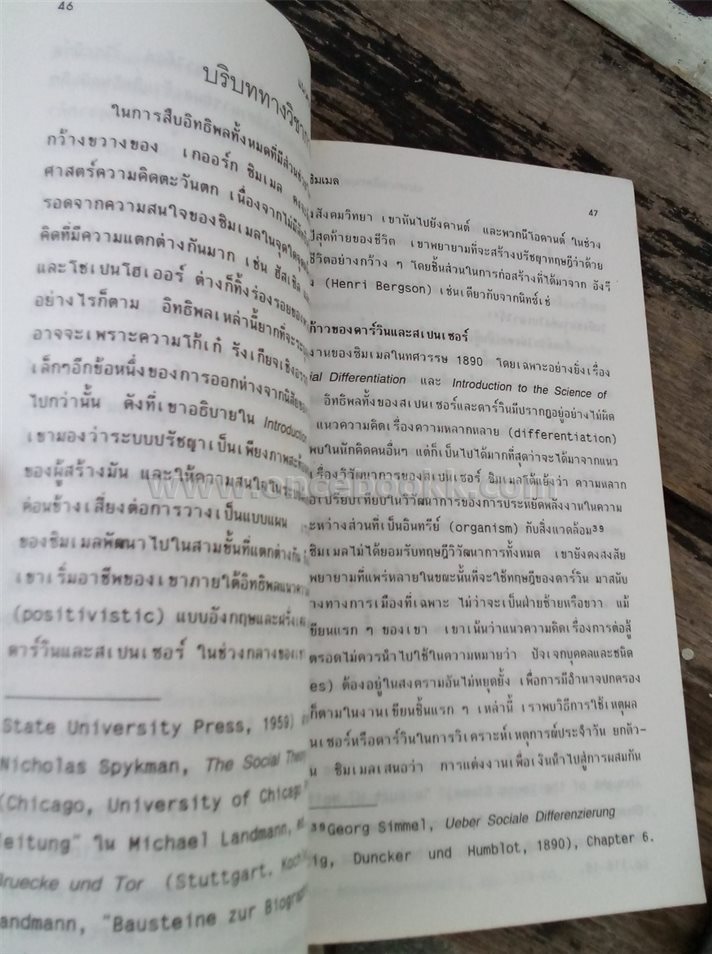 46
บริบททางวิชาก
ในการสืบอิทธิพลทั้งหมดที่มีส่วน
กว้างขวางของ เกออร์ก ซิมเมล
ศาสตร์ความคิดตะวันตก เนื่องจากไม่มี
รอดจากความสนใจของซิมเมลในจุดใด
คิดที่มีความแตกต่างกันมาก เช่น ฮัสเซิล
และโชเปนโฮเออร์ ต่างก็ทิ้งร่องรอยของ
อย่างไรก็ตาม อิทธิพลเหล่านี้ยากที่จะ
อาจจะเพราะความโก้เก๋ รังเกียจเชิง
เล็กๆอีกข้อหนึ่งของการออกห่างจาก
ไปกว่านั้น ดังที่เขาอธิบายใน Introduction
เขามองว่าระบบปรัชญาเป็นเพียงภาพ
ของผู้สร้างมัน และให้ความสนใจ
ค่อนข้างเสี่ยงต่อการวางเป็นแบบแผน
ของซิมเมลพัฒนาไปในสามขั้นที่แตกต่างกัน
เขาเริ่มอาชีพของเขาภายใต้อิทธิพลแนว
(positivistic) แบบอังกฤษและฝรั่ง
ดาร์วินและสเปนเซอร์ ในช่วงกลางของ
State University Press, 1959)
Nicholas Spykman, The Social Theory
(Chicago, University of Chicago
leitung" ใน Michael Landmann,
Bruecke und Tor (Stuttgart.
andmann, "Bausteine zur Biogra
ซิมเมล
47
สังคมวิทยา เขาหันไปยังคานต์ และพวกนีโอคานต์ ในช่วง
ปีสุดท้ายของชีวิต เขาพยายามที่จะสร้างปรัชญาทฤษฎีว่าด้วย
ชีวิตอย่างกว้าง ๆ โดยชิ้นส่วนในการก่อสร้างที่ได้มาจาก อังรี
(Henri Bergson) เช่นเดียวกับจากนิทซ์เช่
ก้าวของดาร์วินและสเปนเซอร์
งานของซิมเมลในทศวรรษ 1890 โดยเฉพาะอย่างยิ่งเรื่อง
ial Differentiation และ Introduction to the Science of
อิทธิพลทั้งของสเปนเซอร์และดาร์วินมีปรากฏอยู่อย่างไม่ผิด
แนวความคิดเรื่องความหลากหลาย (differentiation)
พบในนักคิดคนอื่นๆ แต่ก็เป็นไปได้มากที่สุดว่าจะได้มาจากแนว
เรื่องวิวัฒนาการของสเปนเซอร์ ซิมเมลโต้แย้งว่า ความหลาก
อเปรียบเทียบในวิวัฒนาการของการประหยัดพลังงานในความ
ะหว่างส่วนที่เป็นอินทรีย์ (organism) กับสิ่งแวดล้อม³⁹
ซิมเมลไม่ได้ยอมรับทฤษฎีวิวัฒนาการทั้งหมด เขายังคงสงสัย
พยายามที่แพร่หลายในขณะนั้นที่จะใช้ทฤษฎีของดาร์วิน มาสนับ
างทางการเมืองที่เฉพาะ ไม่ว่าจะเป็นฝ่ายซ้ายหรือขวา แม้
เขียนแรก ๆ ของเขา เขาเน้นว่าแนวความคิดเรื่องการต่อสู้
ตรอดไม่ควรนำไปใช้ในความหมายว่า ปัจเจกบุคคลและชนิด
es) ต้องอยู่ในสงครามอันไม่หยุดยั้ง เพื่อการมีอำนาจปกครอง
ก็ตามในงานเขียนชิ้นแรก ๆ เหล่านี้ เราพบวิธีการใช้เหตุผล
นเซอร์หรือดาร์วินในการวิเคราะห์เหตุการณ์ประจำวัน ยกตัว-
น ซิมเมลเสนอว่า การแต่งงานเพื่อเงินนำไปสู่การผสมกัน
³⁹Georg Simmel, Ueber Sociale Differenzierung
ig, Duncker und Humblot, 1890), Chapter 6.
www.oncebookk.com